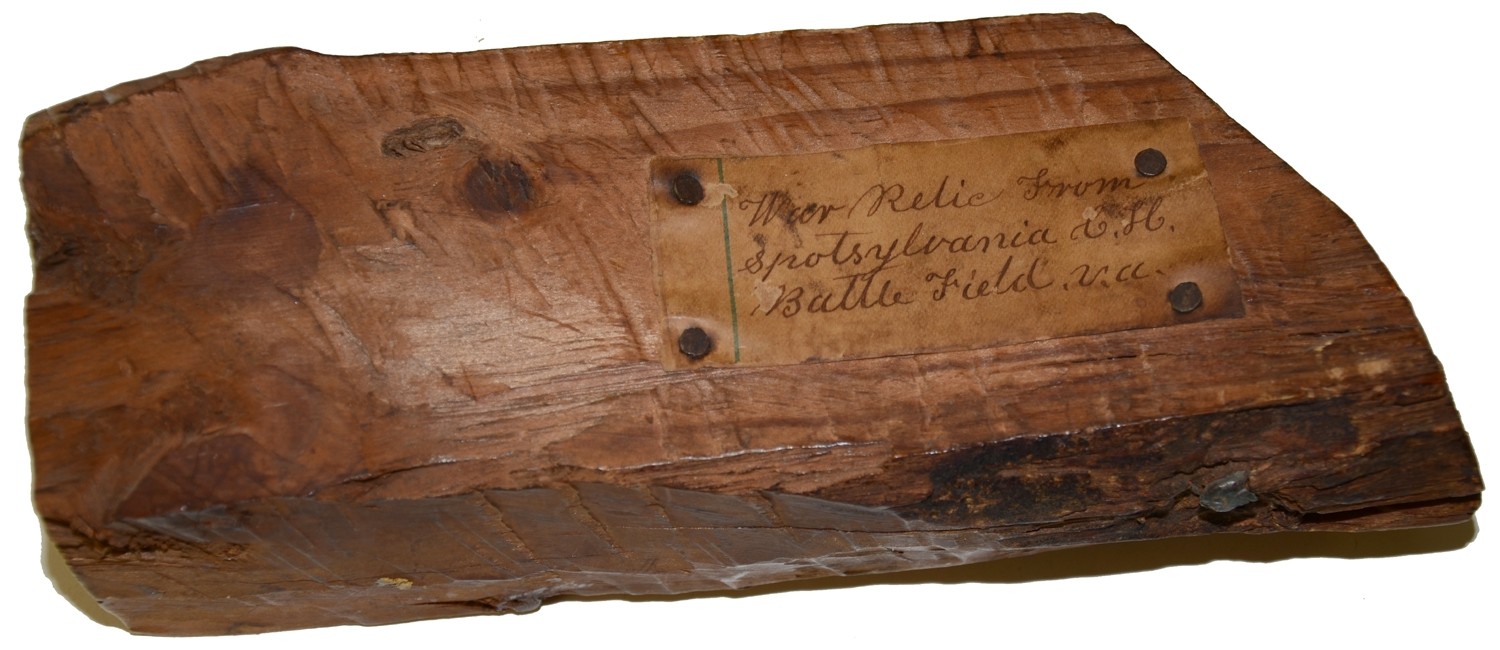 War Relic From
Spotsylvania C.H.
Battle Field .v.a.